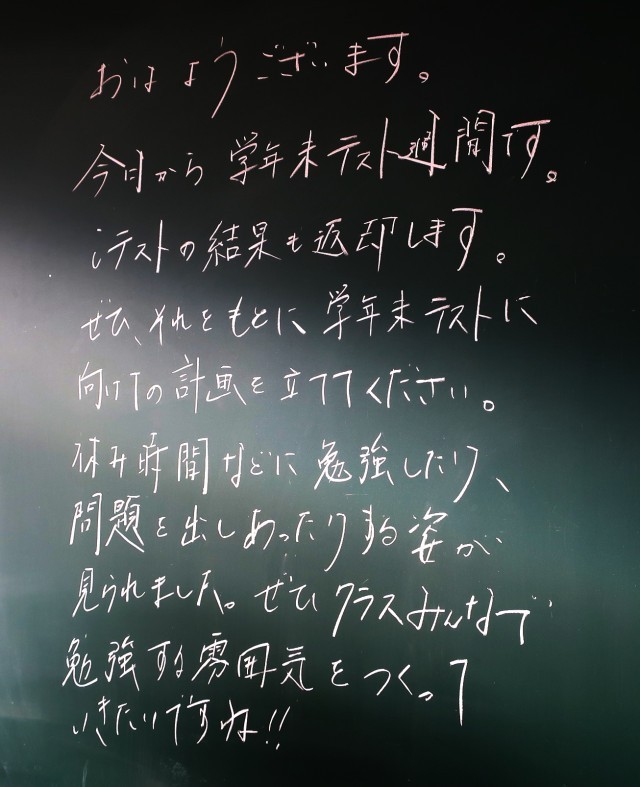 おはようございます。
今日から学年末テスト週間です。
iテストの結果も返却します。
ぜひ、それをもとに学年末テストに
向けての計画を立ててください。
休み時間などに勉強したり、
問題を出しあったりする姿が
見られました。ぜひクラスみんなで
勉強する雰囲気をつくって
いきたいですね!!